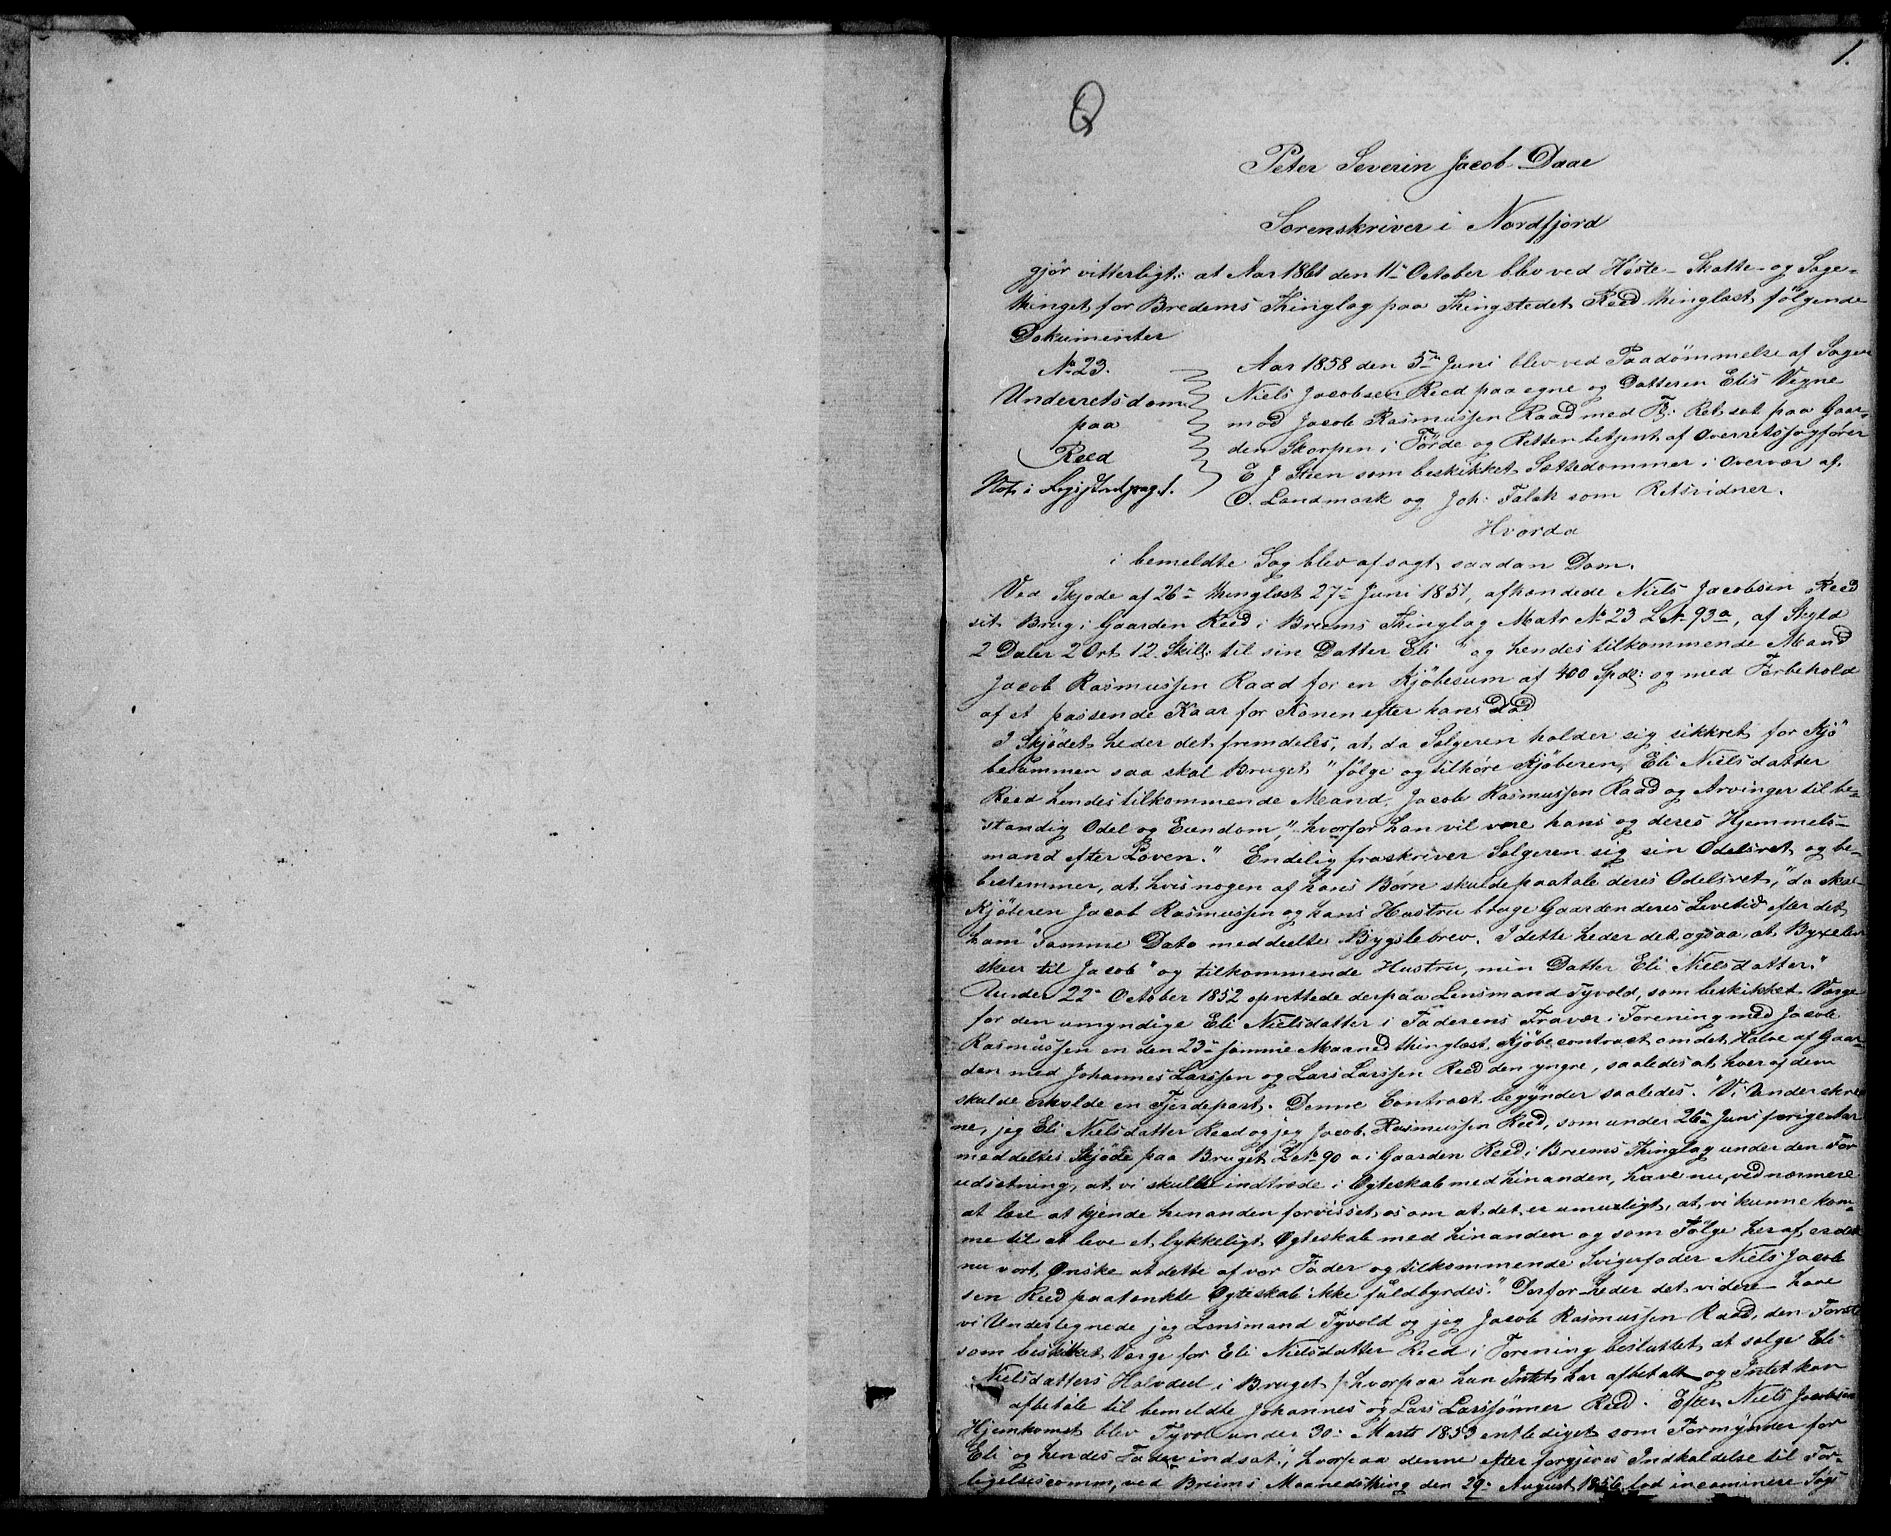 1.
Q
Peter Severin Jacob Daae
Sorenskriver i Nordfjord
gjør vitterligt: at Aar 1861 den 11te October blev ved Høste- Skatte- og Sage-
thinget for Bredems Thinglag paa Thingstedet Reed thinglæst følgende
Dokumenter
No 23.
Underretsdom
paa
Reed
Not: i Registret pag 1.
Aar 1858 den 5te Juni blev ved Paadømmelse af Sagen
Niels Jacobsen Reed paa egne og Datteren Elis Vegne
mod Jacob Rasmussen Raad med Fl: Ret sat paa Gaar-
den Skorpen i Förde og Retten betjent af Overretssagfører
E J Steen som beskikket Sættedommer i Overvær af
O. Landmark og Joh: Falck som Retsvidner.
Hvorda
i bemeldte Sag blev afsagt saadan Dom.
Ved Skjøde af 26de thinglæst 27de Juni 1851, afhændede Niels Jacobsen Reed
sit Brug i Gaarden Reed i Breems Thinglag Matr No 23 L No 93a, af Skyld
2 Daler 2 Ort 12 Skill: til sin Datter Eli "og hendes tilkommende Mand
Jacob Rasmussen Raad for en Kjøbesum af 400 Spdl: og med Forbehold
af et passende Kaar for Konen efter hans Død
I Skjødet heder det fremdeles, at da Sælgeren holder sig sikkret for Kjö-
besummen saa skal Bruget "følge og tilhøre Kjøberen, Eli Nielsdatter
Reed hendes tilkommende Mand, Jacob Rasmussen Raad og Arvinger til be-
standig Odel og Eiendom," hvorfor han vil være hans og deres Hjemmels-
mand efter Loven." Endelig fraskriver Sælgeren sig sin Odelsret og be-
bestemmer, at hvis nogen af hans Børn skulde paatale deres Odelsret, "da skal
Kjøberen Jacob Rasmussen og hans Hustru bruge Gaarden deres Levetid efter det
ham" samme Dato meddeelte Bygslebrev. I dette heder det ogsaa, at Byxelen
skeer til Jacob "og tilkommende Hustru, min Datter Eli Nielsdatter."
Under 22de October 1852 oprettede derpaa Lensmand Tyvold, som beskikket Værge
for den umyndige Eli Nielsdatter i Faderens Fravær i Forening med Jacob
Rasmussen en den 23de samme Maaned thinglæst Kjøbecontract om det Halve af Gaar-
den med Johannes Larssen og Lars Larssen Reed den yngre, saaledes at hver af dem
skulde erholde en Fjerdepart. Denne Contract begynder saaledes. "Vi Underskrev-
ne, jeg Eli Nielsdatter Reed og jeg Jacob Rasmussen Reed, som under 26de Juni forrige Aar
meddeltes Skjøde paa Bruget L No 90 a i Gaarden Reed i Breems Thinglag under den For-
udsætning, at vi skulle indtræde i Ægteskab med hinanden, have nu, ved nærmere
at lære at kjende hinanden forvisset os om at det er umueligt, at vi kunne kom-
me til at leve et lykkeligt Ægteskab med hinanden og som Følge heraf, er det
nu vort Ønske at dette af vor Fader og tilkommende Svigerfader Niels Jacob-
sen Reed paatænkte Ægteskab ikke fuldbyrdes." Derfor heder det videre have
vi Undertegnede jeg Lensmand Tyvold og jeg Jacob Rasmussen Raad, den Første
som beskikket Værge for Eli Nielsdatter Reed i Forening besluttet at sælge Eli
Nielsdatters Halvdeel i Bruget /: hvorpaa hun Intet har afbetalt og Intet kan
afbetale til bemeldte Johannes og Lars Larssønner Reed. Efter Niels Jacobsen
Hjemkomst blev Tyvold under 30te Marts 1853 entlediget som Formynder for
Eli og hendes Fader indsat, hvorpaa denne efter forgjeves Indkaldelse til For-
ligelsescomm, ved Breims Maanedsthing den 29de August 1856 lod incaminere Sags